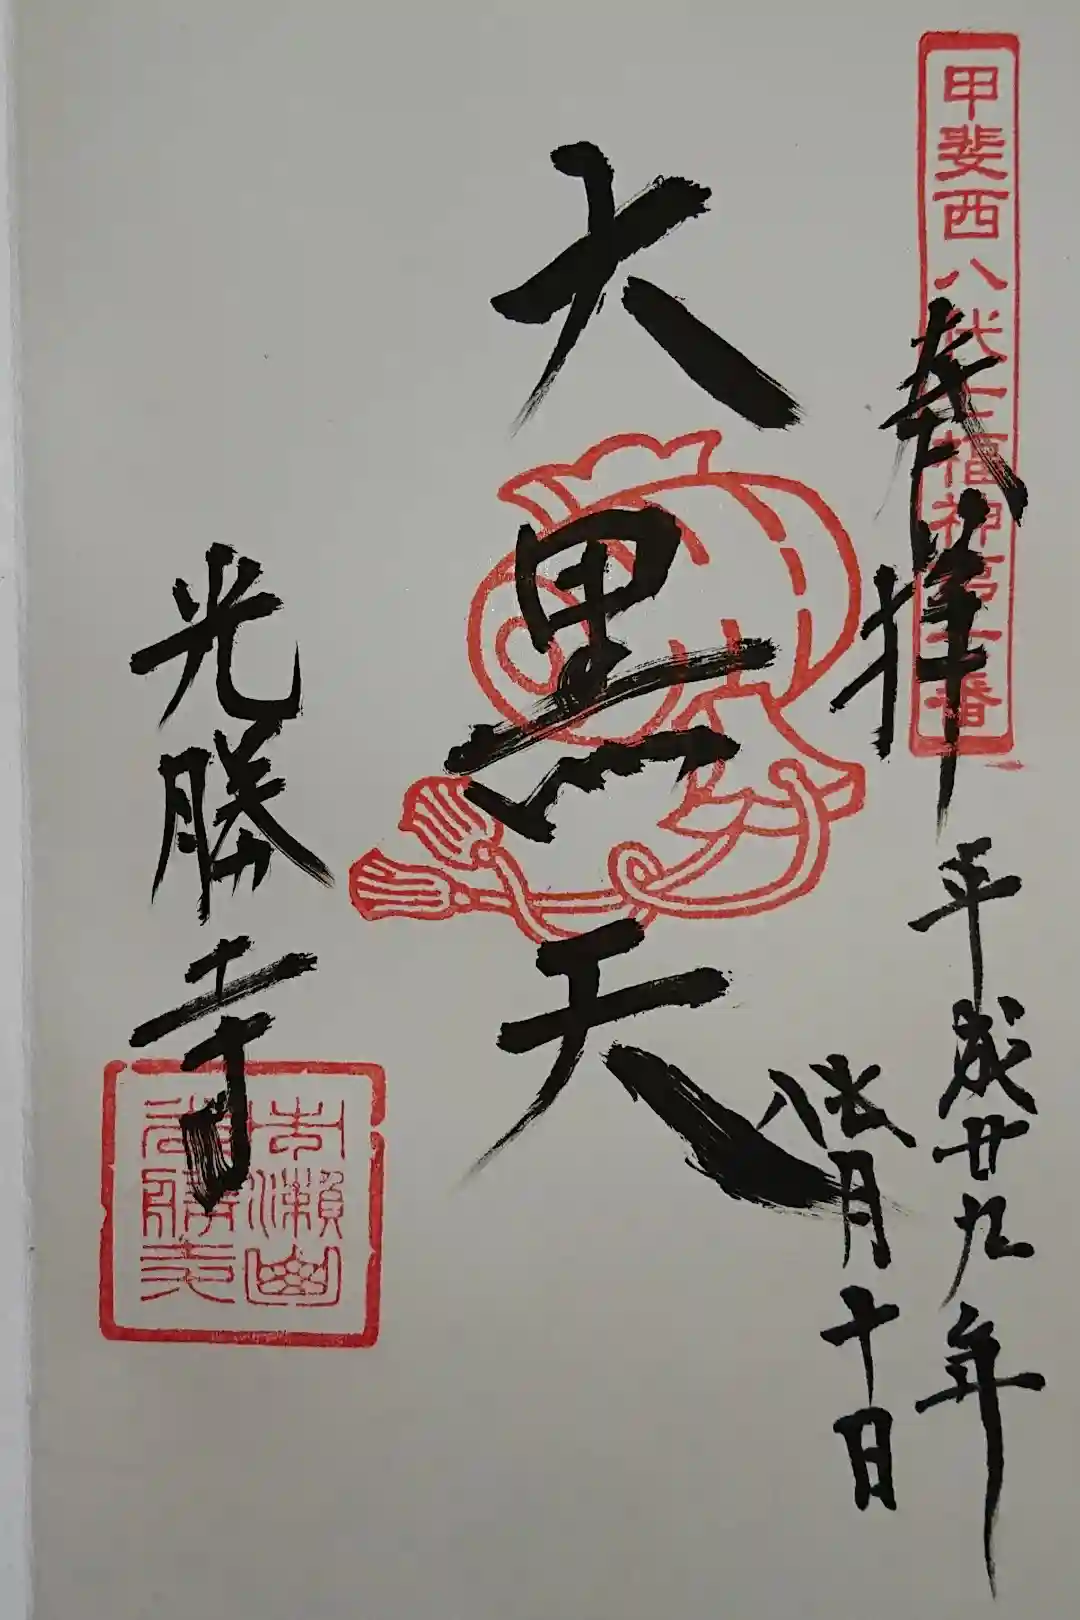 甲斐西八代七福神第二番
奉拝
平成廿九年
八月十日
大黒天
光勝寺